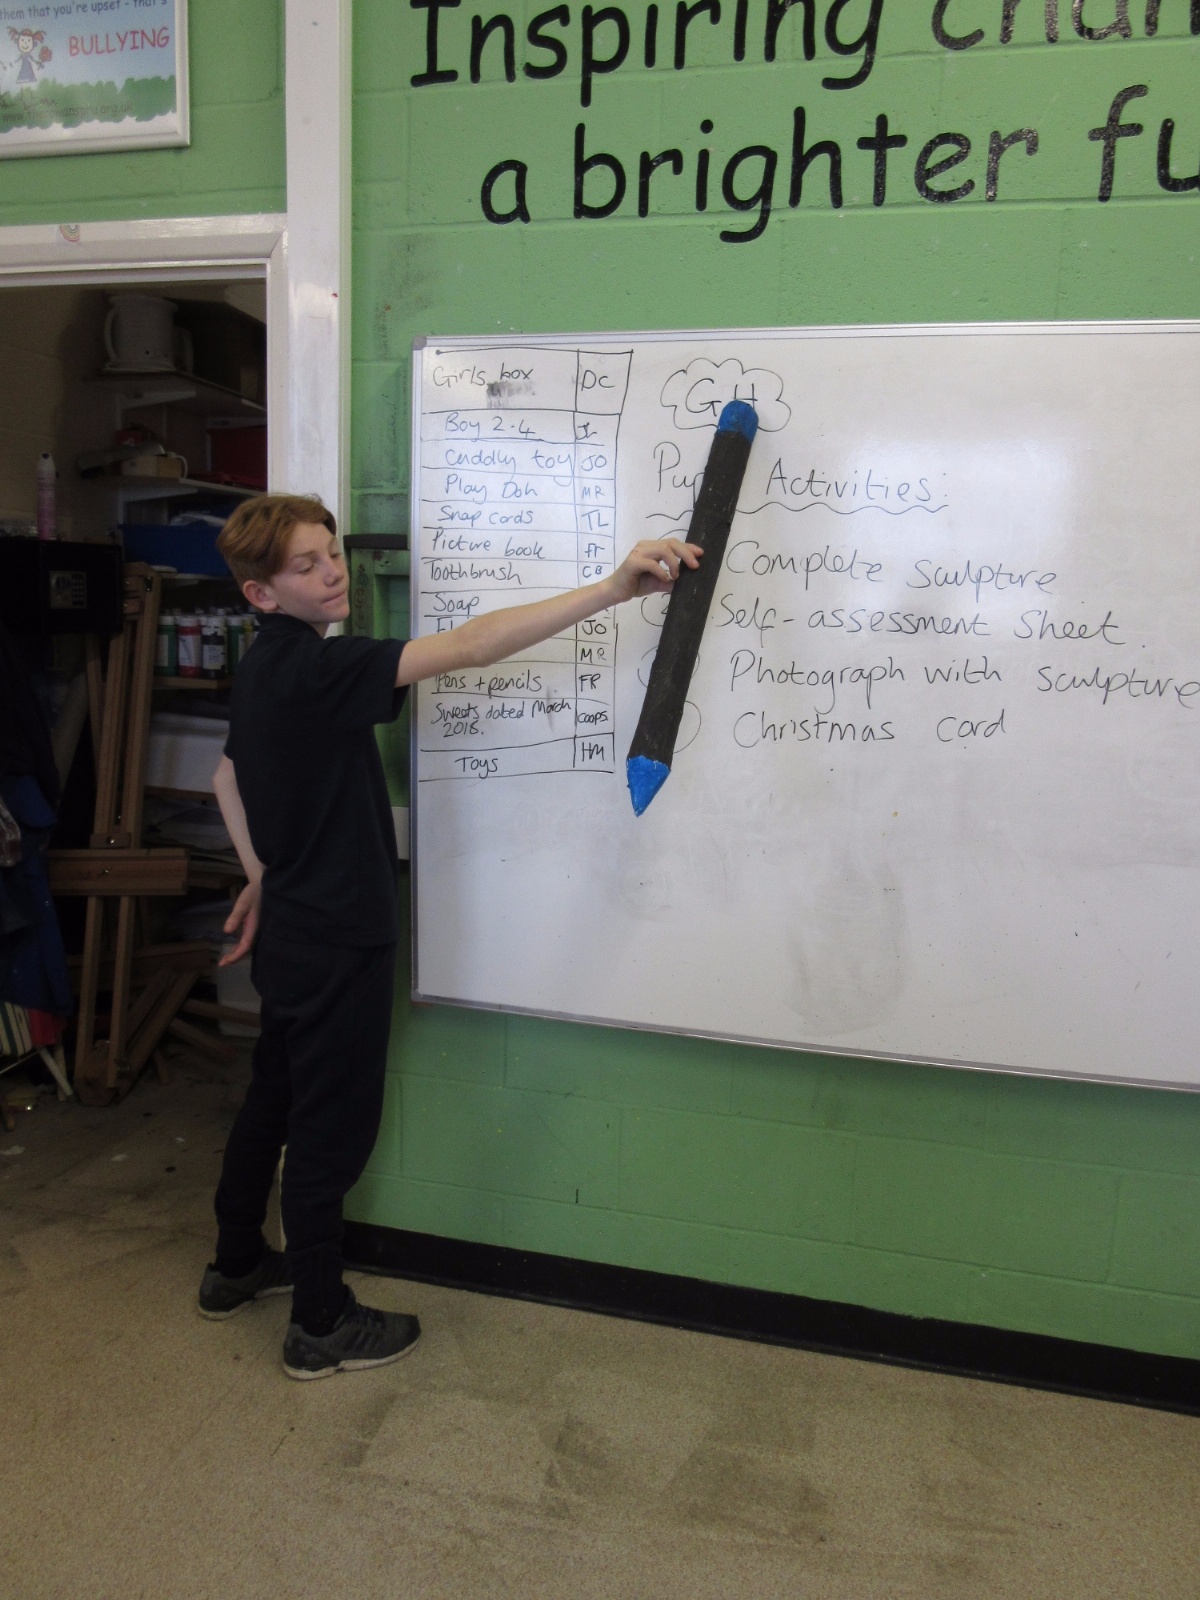 them that you're upset - that's
BULLYING
Inspiring
a brighter
Girls box DC
Boy 2-4
Cuddly toy JO
Play Doh MR
Snap cards TL
Picture book
Toothbrush CB
Soap
JO
MR
Pens + pencils FR
Sweets dated March coops
2018.
Toys HM
GH
Activities:
Complete Sculpture
Self-assessment Sheet.
Photograph with sculpture
Christmas card